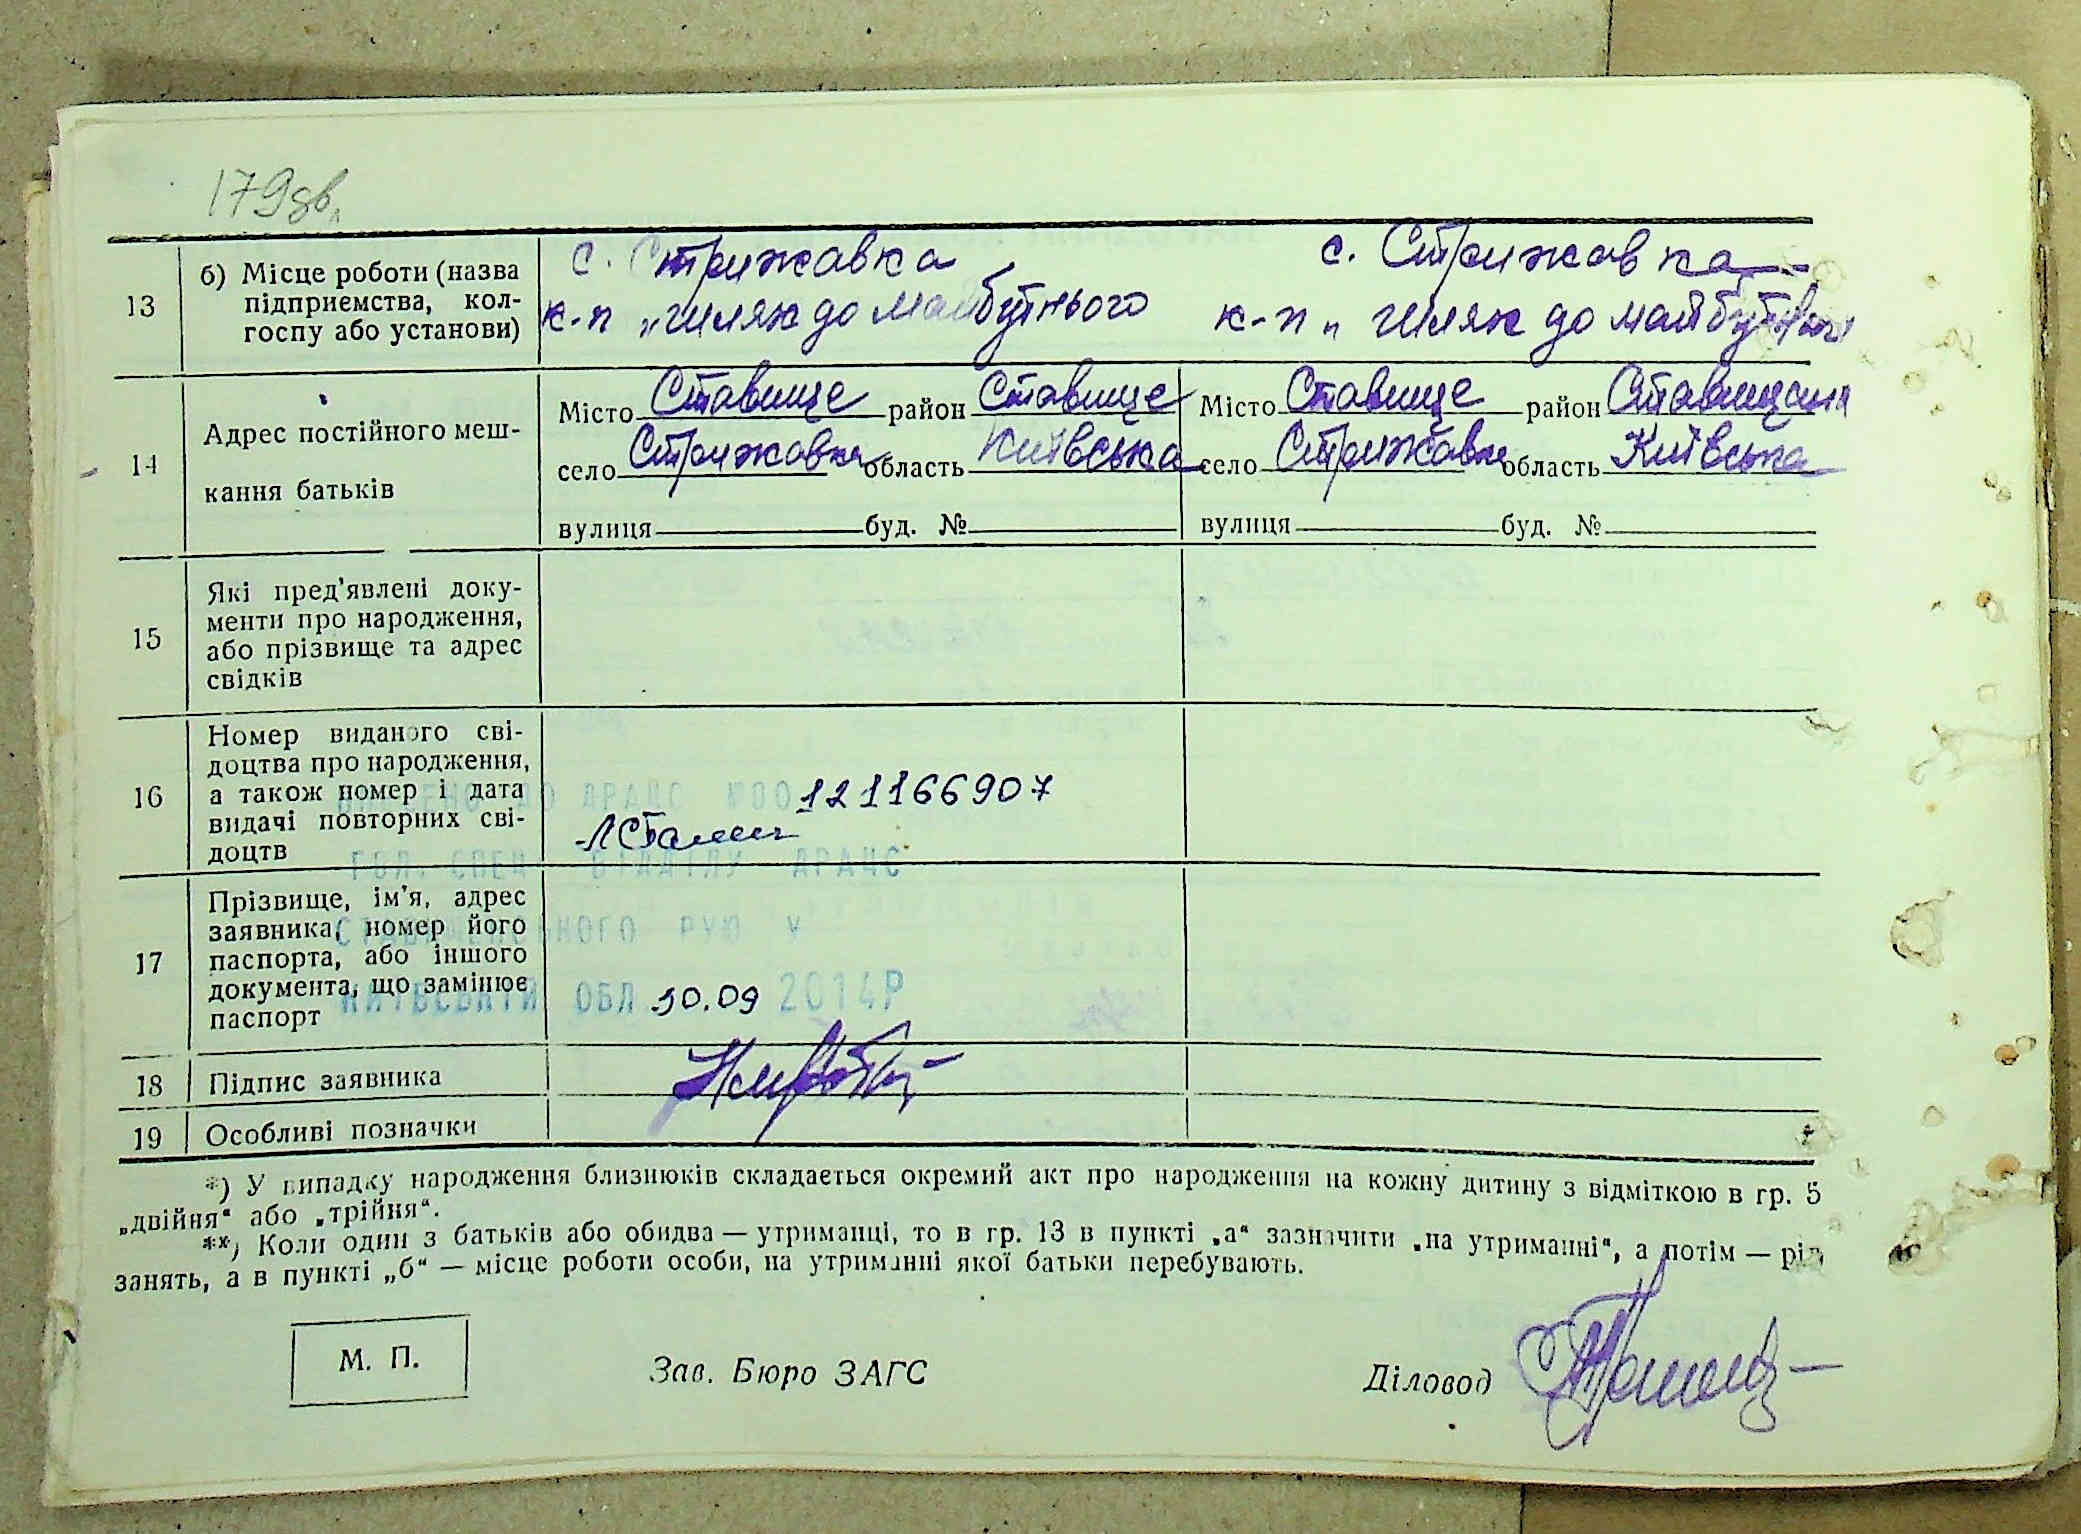 179зв.
13
б) Місце роботи (назва
підприємства, кол-
госпу або установи)
с. Стрижавка
к-п „Шлях до майбутнього
с. Стрижавка
к-п „Шлях до майбутнього
14
Адрес постійного меш-
кання батьків
Місто Ставище район Ставище
село Стрижавка область Київська
вулиця буд. №
Місто Ставище район Ставищан
село Стрижавка область Київська
вулиця буд. №
15
Які пред'явлені доку-
менти про народження,
або прізвище та адрес
свідків
16
Номер виданого сві-
доцтва про народження,
а також номер і дата
видачі повторних сві-
доцтв
ВНЕСЕНО ДО ДРАЦС №00121166907
ГОЛ. СПЕЦ ВІДДІЛУ ДРАЦС
СТАВИЩЕНСЬКОГО РУЮ У
КИЇВСЬКІЙ ОБЛ 10.09 2014Р
17
Прізвище, ім'я, адрес
заявника, номер його
паспорта, або іншого
документа, що замінює
паспорт
18
Підпис заявника
19
Особливі позначки
*) У випадку народження близнюків складається окремий акт про народження на кожну дитину з відміткою в гр. 5
„двійня“ або „трійня“.
**) Коли один з батьків або обидва — утриманці, то в гр. 13 в пункті „а“ зазначити „на утриманні“, а потім — рід
занять, а в пункті „б“ — місце роботи особи, на утриманні якої батьки перебувають.
М. П.
Зав. Бюро ЗАГС
Діловод